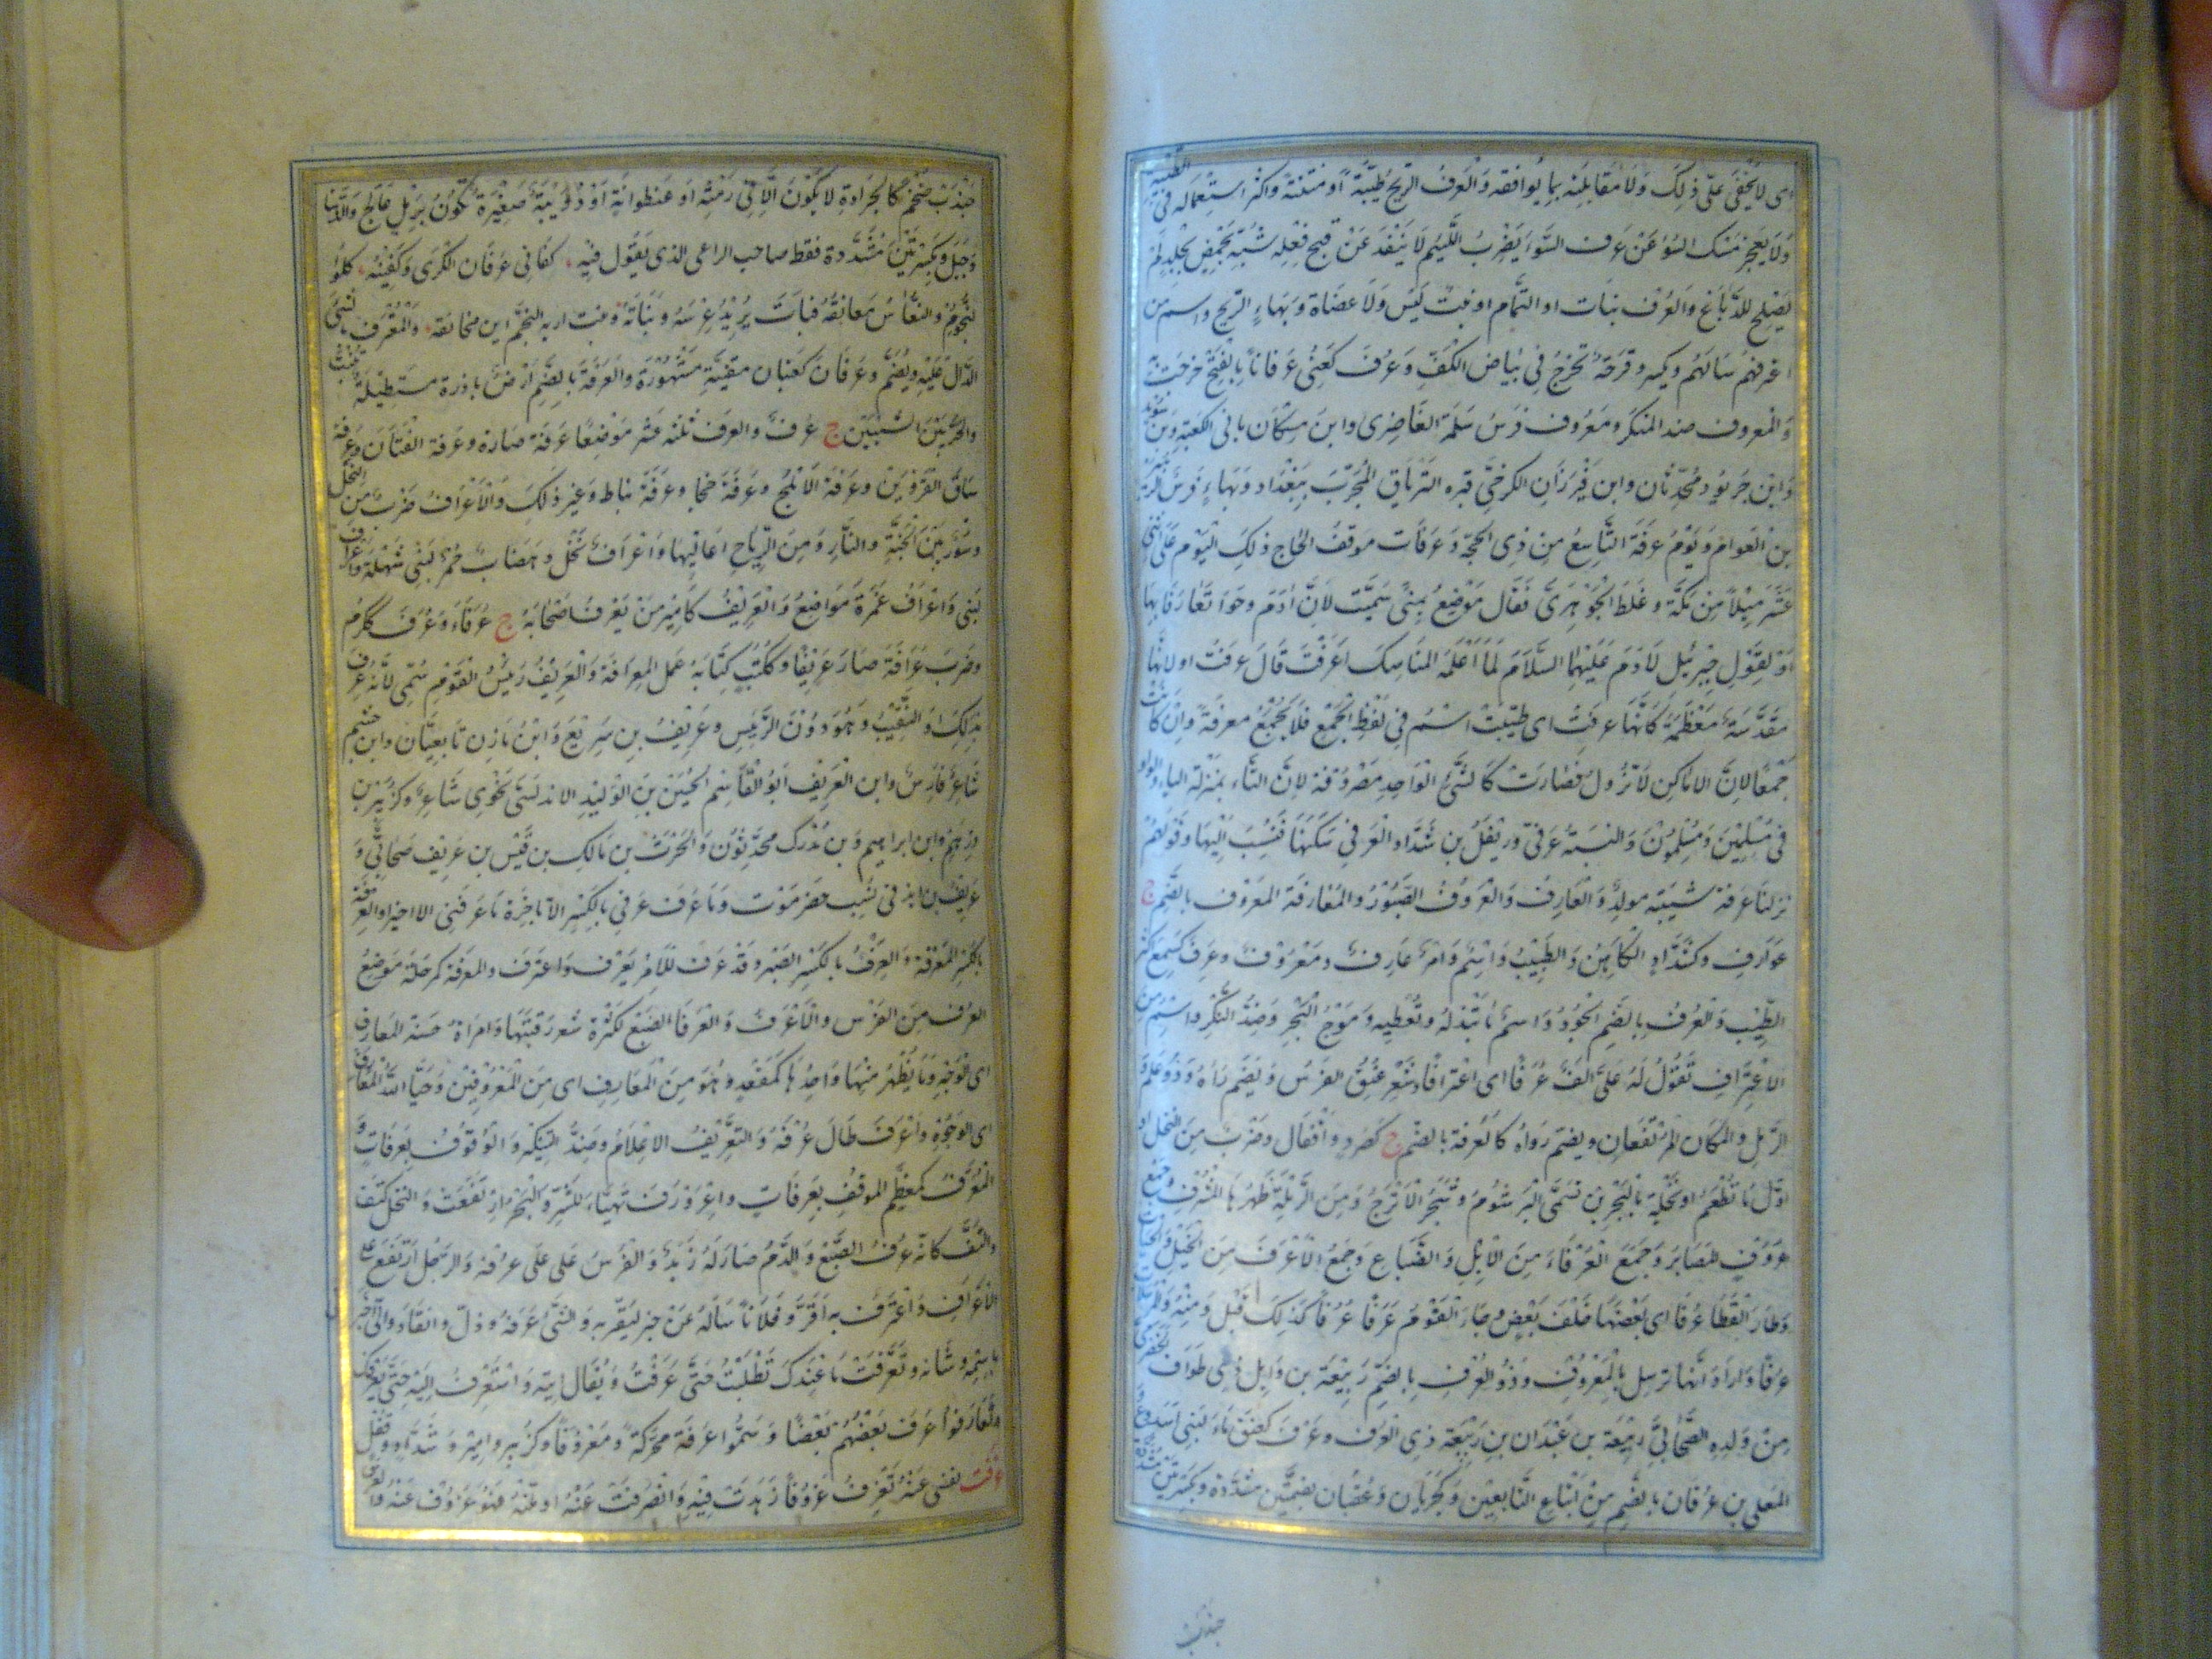 اى لا يخفى على ذلك ولا مقابلته بما يوافقه والعرف الريح طيبة او منتنة واكثر استعماله فى الطيبة
ولا يعجز مسك السوء عن عرف السوء يضرب للئيم لا ينفك عن قبح فعله شبه بجلد لم
يصلح للدباغ والعرف نبات او الثمام او نبت ليس ولا عضاة وبهاء الريح واسم من
اعترفهم سالهم وقرحة تخرج فى بياض الكف وعرف كعنى عرفانا بالفتح خرجت
والمعروف ضد المنكر ومعروف فرس سلمة الغاضرى وابن مسكان بانى الكعبة وبن سويد
وابن خربوذ محدثان وابن فيرزان الكرخى قبره الترياق المجرب ببغداد وبهاء فرس الزبير
بن العوام ويوم عرفة التاسع من ذى الحجة وعرفات موقف الحاج ذلك اليوم على اثنى
عشر ميلا من مكة وغلط الجوهرى فقال موضع بمنى سميت لان ادم وحوا تعارفا بها
او لقول جبرئيل لادم عليهما السلام لما اعلمه المناسك اعرفت قال عرفت او لانها
مقدسة معظمة كانها عرفت اى طيبت اسم فى لفظ الجمع فلا يجمع معرفة وان كانت
جمعا لان الاماكن لا تزول فصارت كالشئ الواحد مصروفة لان التاء بمنزلة الياء والواو
فى مسلمين ومسلمون والنسبة عرفى وزنفل بن شداد العرفى سكنها فنسب اليها وقولهم
نزلنا عرفة شبيه مولد والعارف والعروف الصبور والعارفة المعروف بالضم ج
عوارف وكشداد الكاهن والطبيب واسم وامر عارف ومعروف وعرف كسمع اكثر
الطيب والعرف بالضم الجود واسم ما تبذله وتعطيه وموج البحر وضد النكر واسم من
الاعتراف تقول له على الف عرفا اى اعترافا وشعر عنق الفرس ويضم راه وعلم
الرمل والمكان المرتفعان ويضم رواه كالعرفة بالضم ج كصرد واقفال وضرب من النخل او
اول ما تطعم او نخلة بالبحرين تسمى البرشوم وشجر الاترج ومن الرملة ظهرها المشرف وجمع
عروف للصابر وجمع العرفاء من الابل والضباع وجمع الاعرف من الخيل والحيات
وطار القطا عرفا اى بعضها خلف بعض وجاء القوم عرفا عرفا كذلك قيل ومنه والمرسلات
عرفا واراد انها ترسل بالمعروف وذو العرف بالضم ربيعة بن وايل ذى طواف الحضرمى
من ولده الصحابى ربيعة بن عيدان بن ربيعة ذى العرف وعرف كعنق ماء لبنى اسد
المعلى بن عرفان بالضم من اتباع التابعين وكجربان وعفتان بضمتين مشددة وبكسرتين مشددة
جندب
جندب ضخم كالجرادة لا يكون الا فى رمثة او عنظوانة او دويبة صغيرة تكون برمل عالج والدهنا
وجبل وبكسرتين مشددة فقط صاحب الراعى الذى يقول فيه كفانى عرفان الكرى وكفيته كلو
النجوم والنعاس معانقه فبات يريه عرسه وبناته وبت اريه النجم اين مخافقه والمعرف الشئ
الدال عليه ويضم وعرفان كعتبان مغنية مشهورة والعرفة بالضم ارض بارزة مستطيلة تنبت
والحد بين الشيئين ج عرف والعرف ثلثة عشر موضعا عرفة صارة وعرفة القنان وعرفة
ساق الفروين وعرفة الاملح وعرفة خجا وعرفة نباط وغير ذلك والاعراف ضرب من النخل
وسور بين الجنة والنار ومن الرياح اعاليها واعراف نخل وهضاب حمر لبنى سهلة واعراف
لبنى واعراف غمرة مواضع والعريف كامير من يعرف اصحابه ج عرفاء وعرف ككرم
وضرب عرافة صار عريفا وككتب كتابة عمل العرافة والعريف رئيس القوم سمى لانه عرف
بذلك او النقيب وهو دون الرئيس وعريف بن سريع وابن مازن تابعيان وابن جشم
شاعر فارس وابن العريف ابو القاسم الحسين بن الوليد الاندلسى نحوى شاعر وكزبير بن
درهم وابن ابراهيم وبن مدرك محدثون والحرث بن مالك بن قيس بن عريف صحابى و
عريف بن ابد فى نسب حضرموت وما عرف عرفى بالكسر الا باخرة ما عرفنى الا اخيرا والعرفة
بالكسر المعرفة والعرف بالكسر الصبر وقد عرف للامر يعرف واعترف والمعرفة كمرحلة موضع
العرف من الفرس والاعرف والعرفا الضبع لكثرة شعر رقبتها وامراة حسنة المعارف
اى الوجه وما يظهر منها واحدها كمقعد وهو من المعارف اى من المعروفين وحيا الله المعارف
اى الوجوه واعرف طال عرفه والتعريف الاعلام وضد التنكير والوقوف بعرفات و
المعرف كمعظم الموقف بعرفات واعرورف تهيأ للشر والبحر ارتفعت والنخل كثف
والتف كانه عرف الضبع والدم صار له زبد والفرس على على عرفه والرجل ارتفع على
الاعراف واعترف به اقر وفلانا ساله عن خبر ليعرفه والشئ عرفه وذل وانقاد والى اخبرنى
باسمه وشانه وتعرفت ما عندك تطلبت حتى عرفت ويقال ايته واستعرف اليه حتى يعرفك
وتعارفوا عرف بعضهم بعضا وسموا عرفة محركة ومعروفا وكزبير وامير وشداد وقفل
عزفت نفسى عنه تعزف عزوفا زهدت فيه وانصرفت عنه او ملته فهو عزوف عنه